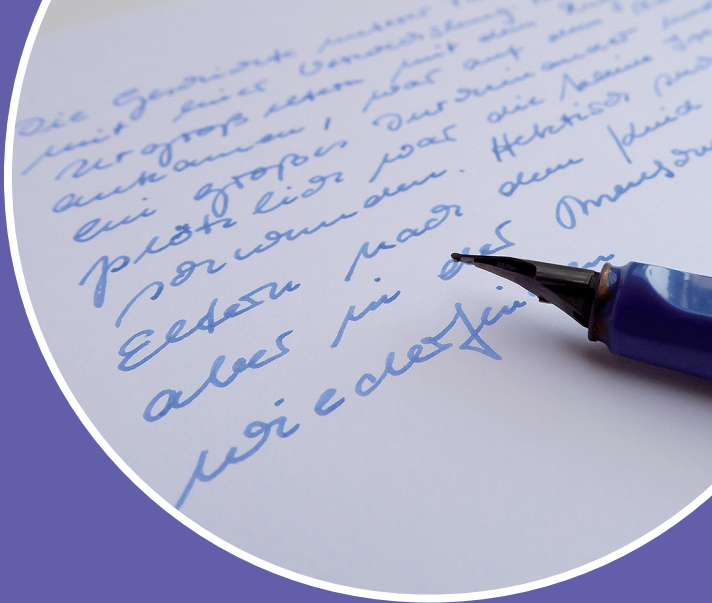 Die Geschichte meiner
mit einer Verwechslung
Urgroßeltern mit dem
ankamen, war auf dem
ein großes Durcheinander und
plötzlich war die kleine
verschwunden. Hektisch
Eltern nach dem Kind
aber in der
wiederfin